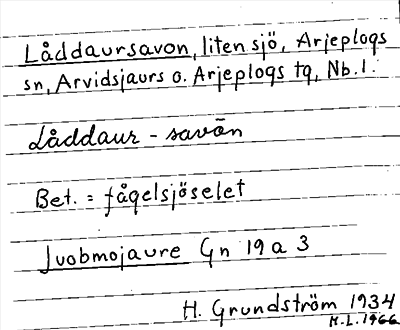 Låddaursavon, liten sjö, Arjeplogs
sn, Arvidsjaurs o. Arjeplogs tg, Nb. l.
Låddaur - savōn
Bet. = fågelsjöselet
Juobmojaure Gn 19 a 3
H. Grundström 1934
H.L. 1966